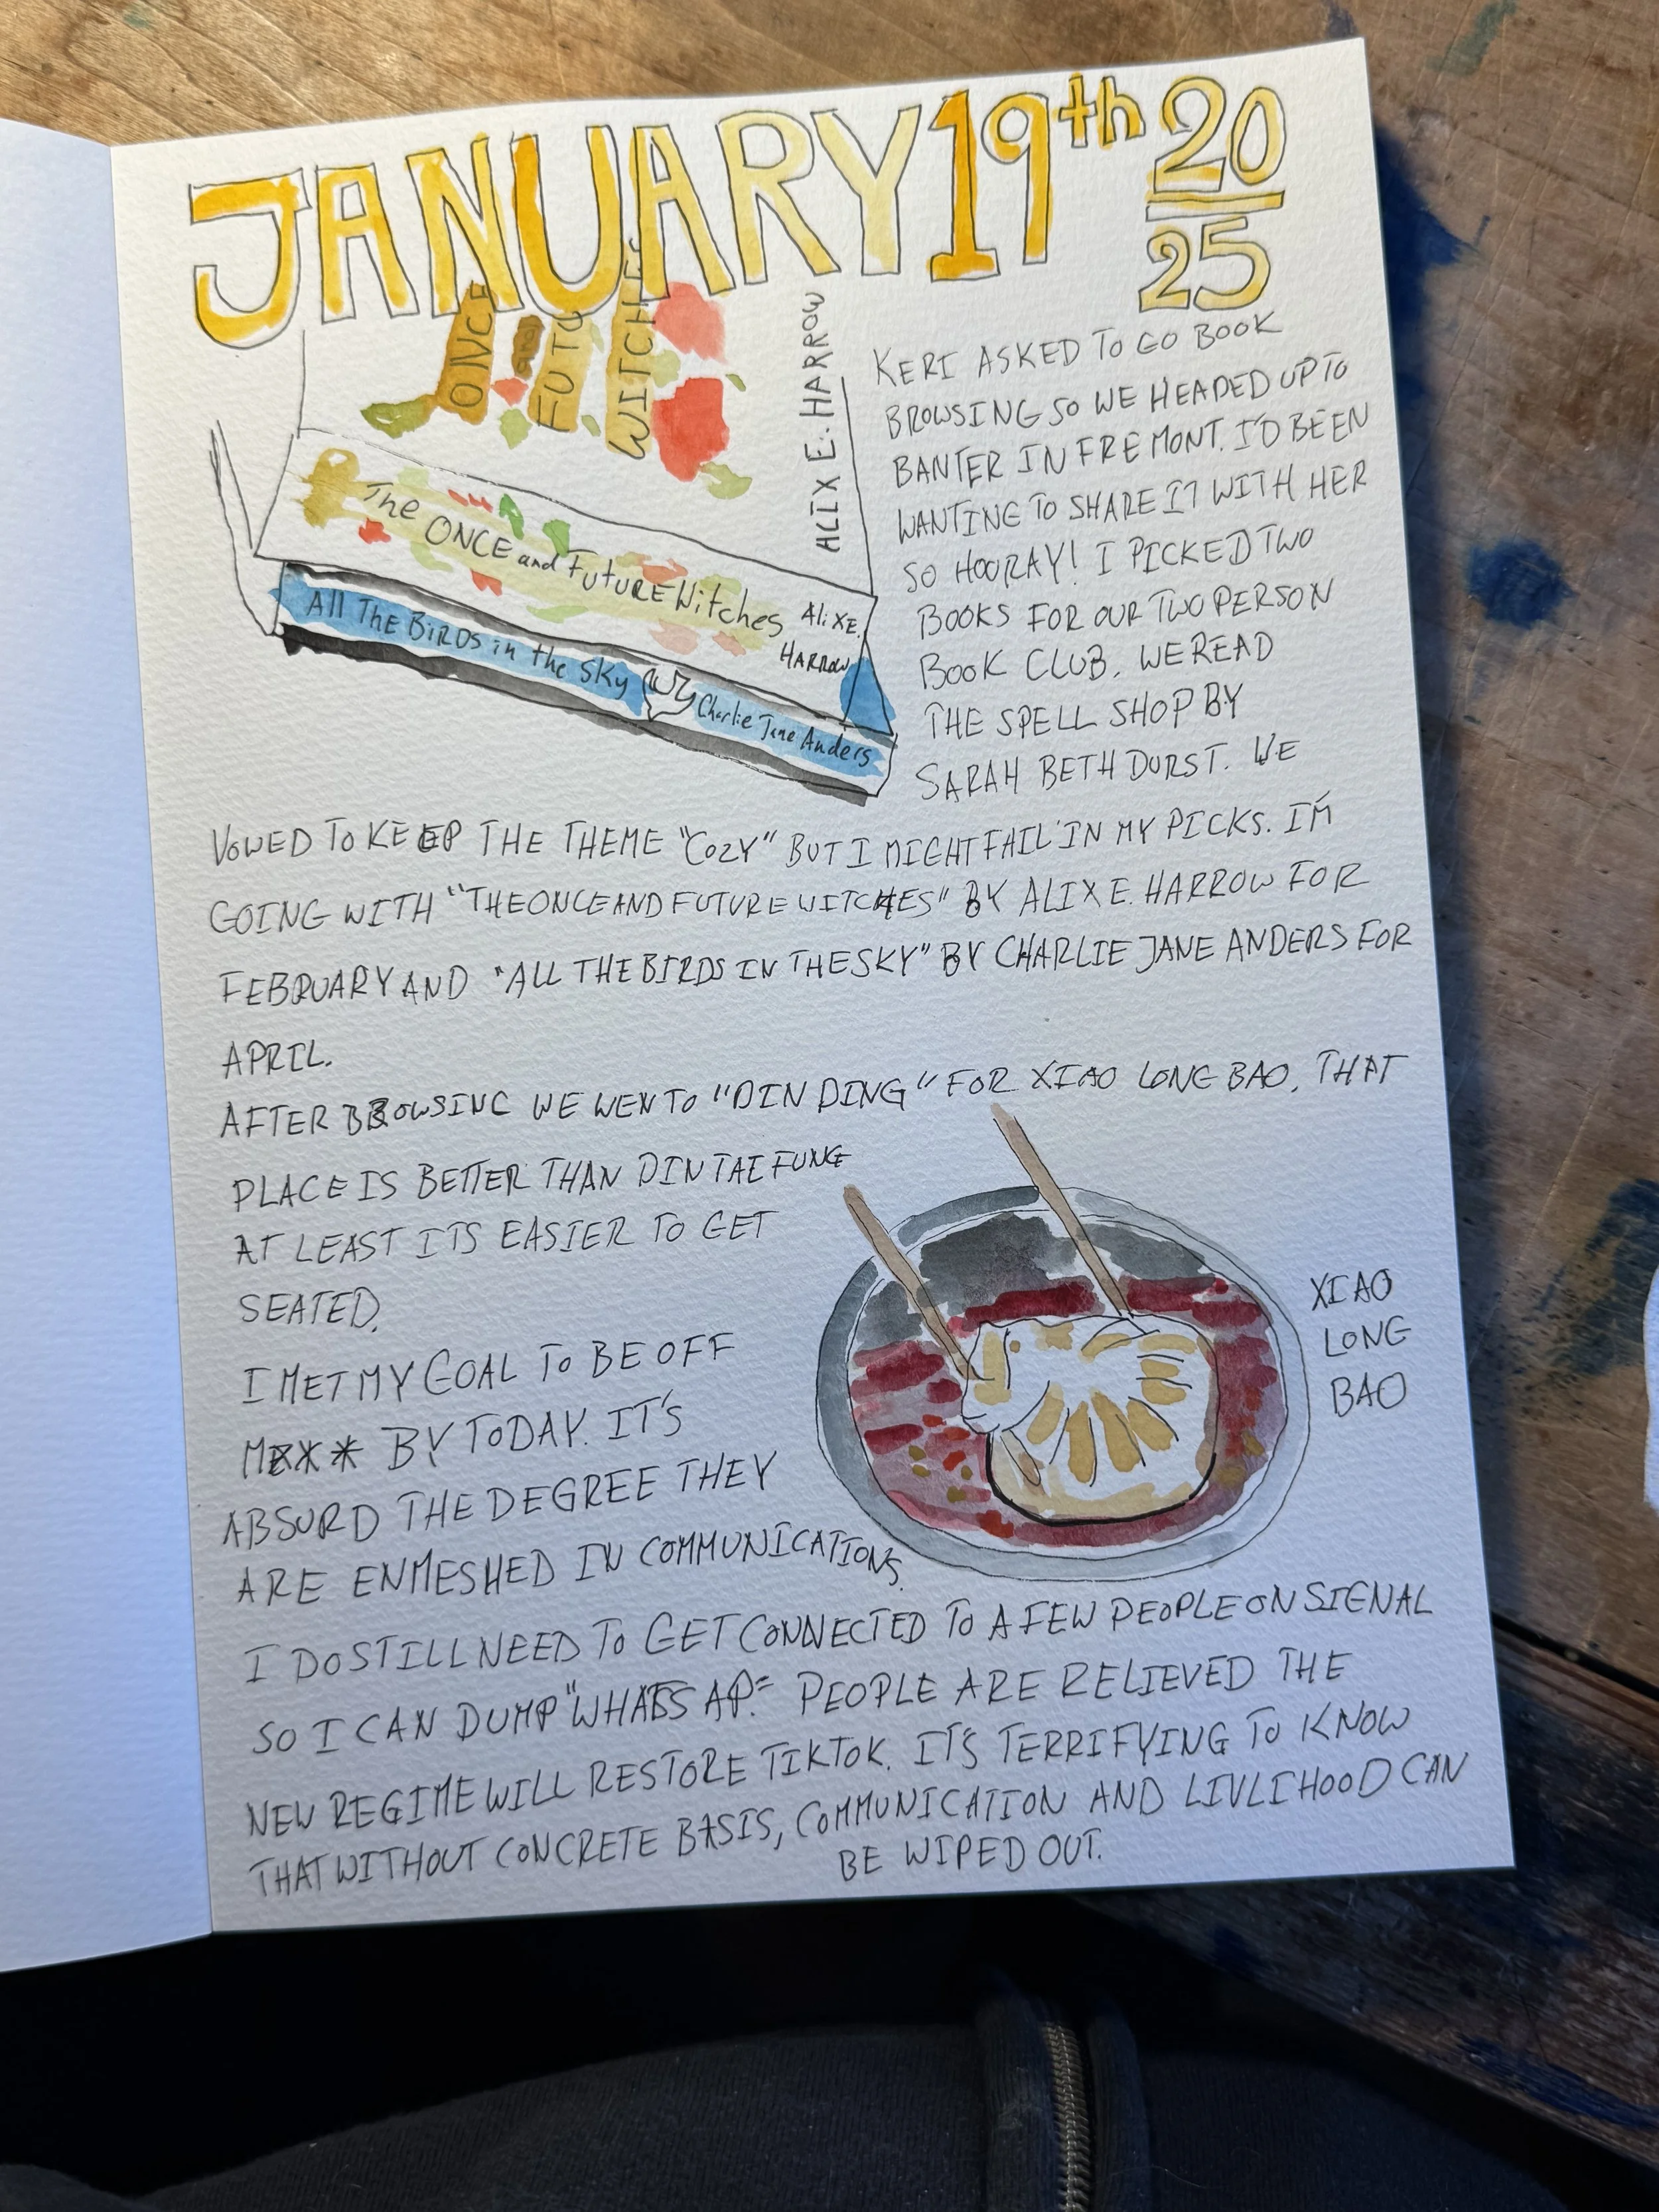 JANUARY 19th 20
25
ONCE and FUTU WITCHES
ALIX E. HARROW
The ONCE and FUTURE Witches AliX E.
HARROW
All THE BIRDS in the Sky Charlie Jane Anders
KERI ASKED TO GO BOOK
BROWSING SO WE HEADED UP TO
BANTER IN FREMONT. I'D BEEN
WANTING TO SHARE IT WITH HER
SO HOORAY! I PICKED TWO
BOOKS FOR OUR TWO PERSON
BOOK CLUB. WE READ
THE SPELL SHOP BY
SARAH BETH DURST. WE
VOWED TO KEEP THE THEME "COZY" BUT I MIGHT FAIL IN MY PICKS. I'M
GOING WITH "THE ONCE AND FUTURE WITCHES" BY ALIX E. HARROW FOR
FEBRUARY AND "ALL THE BIRDS IN THE SKY" BY CHARLIE JANE ANDERS FOR
APRIL.
AFTER BROWSING WE WEN TO "DIN DING" FOR XIAO LONG BAO. THAT
PLACE IS BETTER THAN DIN TAI FUNG
AT LEAST ITS EASIER TO GET
SEATED.
XIAO
LONG
BAO
I MET MY GOAL TO BE OFF
M*** BY TODAY. IT'S
ABSURD THE DEGREE THEY
ARE ENMESHED IN COMMUNICATIONS.
I DO STILL NEED TO GET CONNECTED TO A FEW PEOPLE ON SIGNAL
SO I CAN DUMP "WHATS AP." PEOPLE ARE RELIEVED THE
NEW REGIME WILL RESTORE TIKTOK. IT'S TERRIFYING TO KNOW
THAT WITHOUT CONCRETE BASIS, COMMUNICATION AND LIVLIHOOD CAN
BE WIPED OUT.